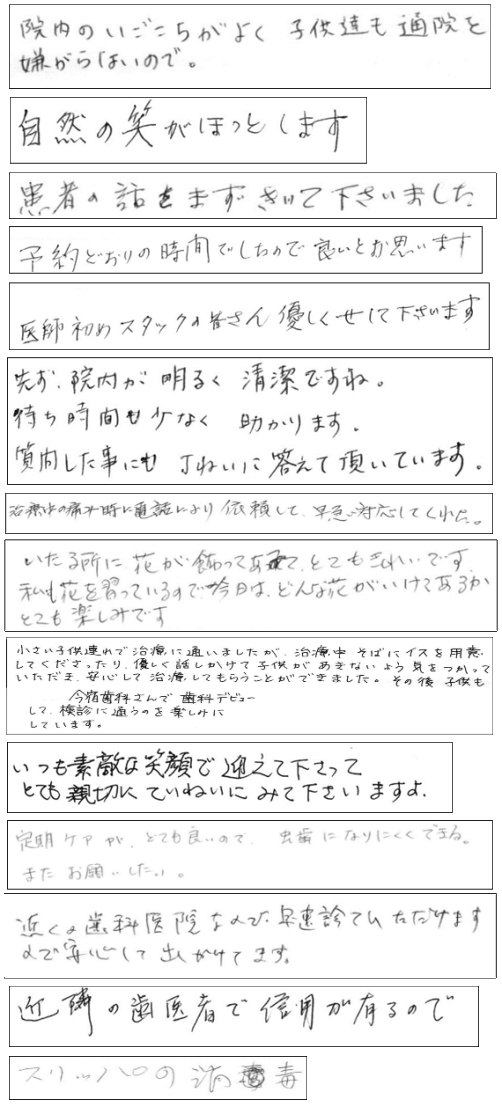 院内のいごこちがよく 子供達も通院を
嫌がらないので。
自然の笑がほっとします
患者の話をまずきいて下さいました
予約どおりの時間でしたので良いとお思います
医師初めスタッフの皆さん優しくせして下さいます
先ず、院内が明るく 清潔ですね。
待ち時間も少なく 助かります。
質問した事にも 丁ねいに答えて頂いています。
治療後の痛み時に電話により依頼して、早急に対応してくれた。
いたる所に花が飾ってあって、とてもきれいです。
私も花を習っているので今日は、どんな花がいけてあるか
とても楽しみです
小さい子供連れで治療に通いましたが、治療中そばにイスを用意
してくださったり、優しく話しかけて子供があきないよう気をつかって
いただき、安心して治療してもらうことができました。その後 子供も
今宿歯科さんで歯科デビュー
して、検診に通うのを楽しみに
しています。
いつも素敵な笑顔で迎えて下さって
とても親切にていねいにみて下さいますよ。
定期ケアが、とても良いので、虫歯になりにくくできる。
またお願いしたい。
近くの歯科医院なので、早速診ていただけます
ので安心して出かけてます。
近隣の歯医者で信用が有るので
スリッパの消毒